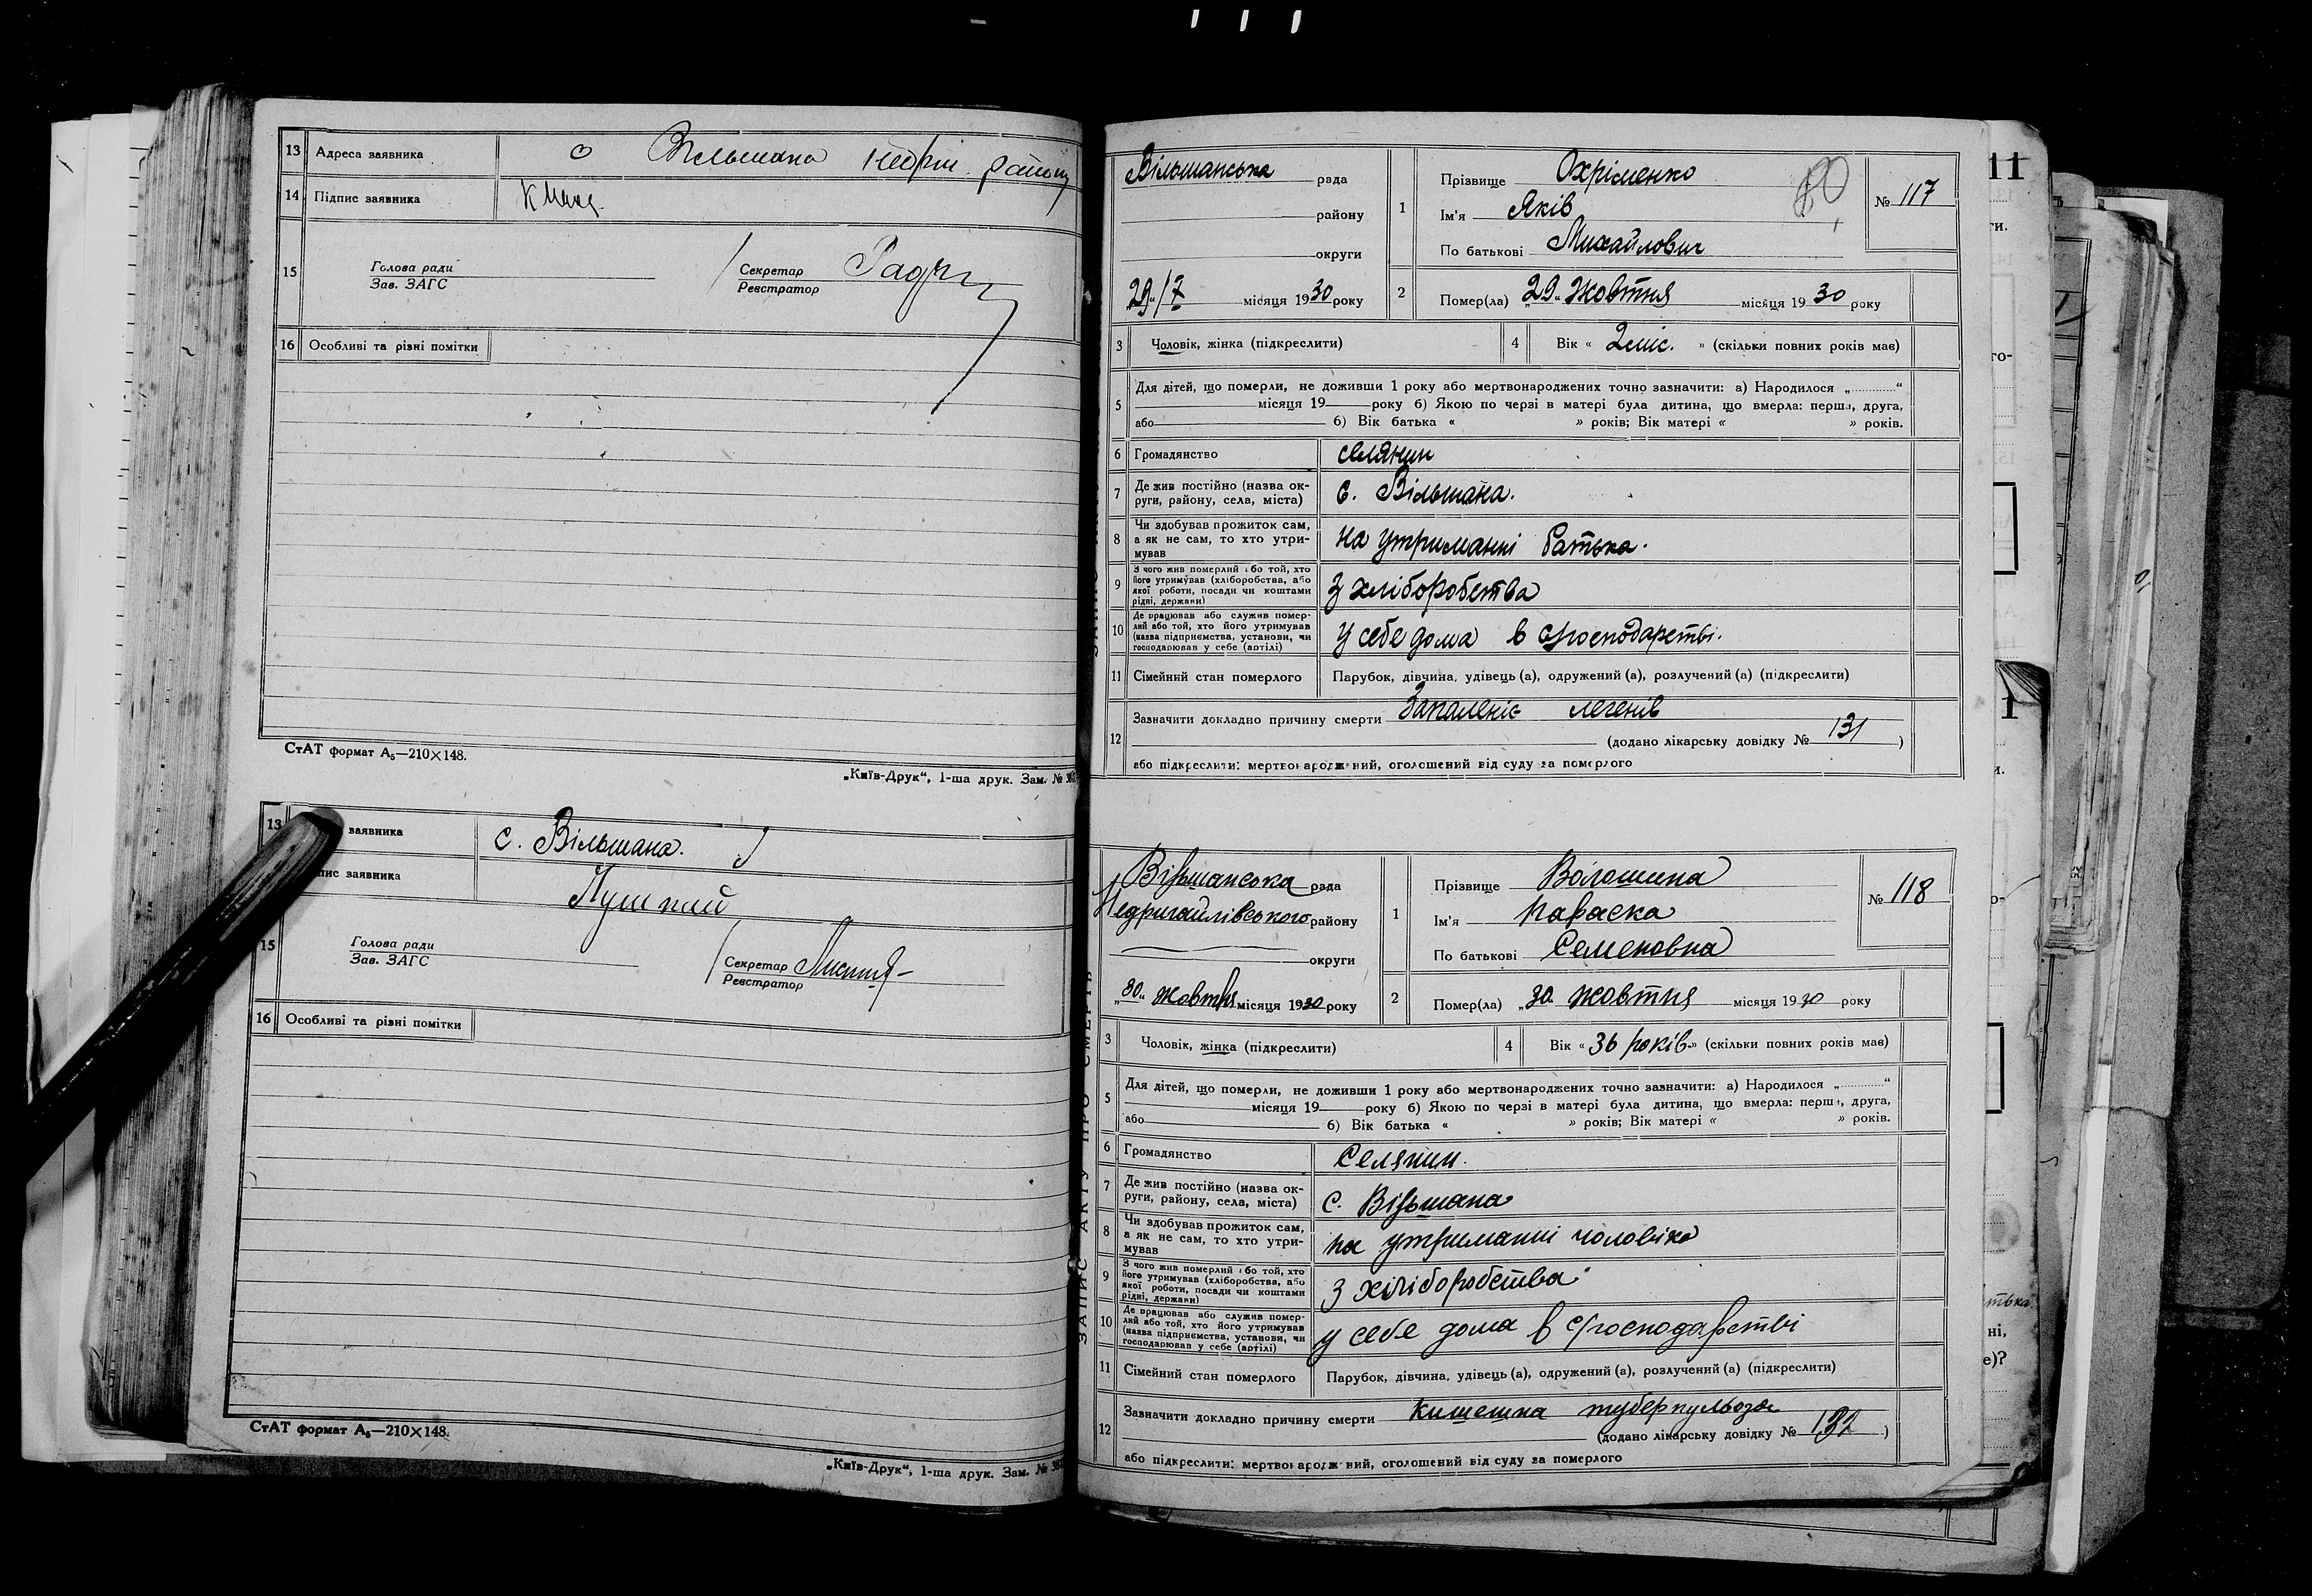 13 Адреса заявника с Вільшана Недриг. району
14 Підпис заявника
15 Голова ради Секретар
Зав. ЗАГС Реєстратор
16 Особливі та різні помітки
СтАТ формат А₅—210×148.
„Київ-Друк“, 1-ша друк. Зам. №
13 заявника с. Вільшана.
заявника
15 Голова ради Секретар
Зав. ЗАГС Реєстратор
16 Особливі та різні помітки
СтАТ формат А₅—210×148.
„Київ-Друк“, 1-ша друк. Зам. №
ЗАПИС АКТУ ПРО СМЕРТЬ
Вільшанська рада
району
округи
„29“/7 місяця 1930 року
1 Прізвище Охріменко
Ім'я Яків
По батькові Михайлович
80
№ 117
2 Помер(ла) „29“ жовтня місяця 1930 року
3 Чоловік, жінка (підкреслити) 4 Вік « 2 міс. » (скільки повних років має)
5 Для дітей, що померли, не доживши 1 року або мертвонароджених точно зазначити: а) Народилося „ “
місяця 19 року б) Якою по черзі в матері була дитина, що вмерла: перша, друга,
або б) Вік батька « » років; Вік матері « » років.
6 Громадянство селянин
7 Де жив постійно (назва ок-
руги, району, села, міста) с. Вільшана.
8 Чи здобував прожиток сам,
а як не сам, то хто утри-
мував на утриманні батька.
9 З чого жив померлий або той, хто
його утримував (хліборобства, або
якої роботи, посади чи коштами
рідні, держави) З хліборобства
10 Де працював або служив помер-
лий або той, хто його утримував
(назва підприємства, установи, чи
господарював у себе (артілі) у себе дома в господарстві.
11 Сімейний стан померлого Парубок, дівчина, удівець (а), одружений (а), розлучений (а) (підкреслити)
12 Зазначити докладно причину смерти Запаленіє легенів
(додано лікарську довідку № 131 )
або підкреслити: мертвонароджений, оголошений від суду за померлого
Вільшанська рада
Недригайлівського району
округи
„30“ жовтня місяця 1930 року
1 Прізвище Волошина
Ім'я Параска
По батькові Семеновна
№ 118
2 Помер(ла) „30 жовтня місяця 1930 року
3 Чоловік, жінка (підкреслити) 4 Вік « 36 років » (скільки повних років має)
5 Для дітей, що померли, не доживши 1 року або мертвонароджених точно зазначити: а) Народилося „ “
місяця 19 року б) Якою по черзі в матері була дитина, що вмерла: перша, друга,
або б) Вік батька « » років; Вік матері « » років.
6 Громадянство Селянин.
7 Де жив постійно (назва ок-
руги, району, села, міста) с. Вільшана
8 Чи здобував прожиток сам,
а як не сам, то хто утри-
мував на утриманні чоловіка
9 З чого жив померлий або той, хто
його утримував (хліборобства, або
якої роботи, посади чи коштами
рідні, держави) З хліборобства
10 Де працював або служив помер-
лий або той, хто його утримував
(назва підприємства, установи, чи
господарював у себе (артілі) у себе дома в господарстві
11 Сімейний стан померлого Парубок, дівчина, удівець (а), одружений (а), розлучений (а) (підкреслити)
12 Зазначити докладно причину смерти Кишешна туберкульоза
(додано лікарську довідку № 132 )
або підкреслити: мертвонароджений, оголошений від суду за померлого